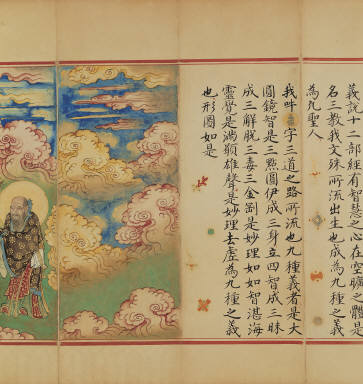 義説十二部經有智慧之心在空臟體是
名三教我文殊所流出生也成為九種之義
為九聖人
我吽字三道之路所流也九種義者是大
圓鏡智是三㸃圓伊成三身立四智成三昧
成三解脱三毒三金剛是妙理如如智湛海
靈覺是滿顏雄聲是妙理去虛為九種之義
也形圖如是